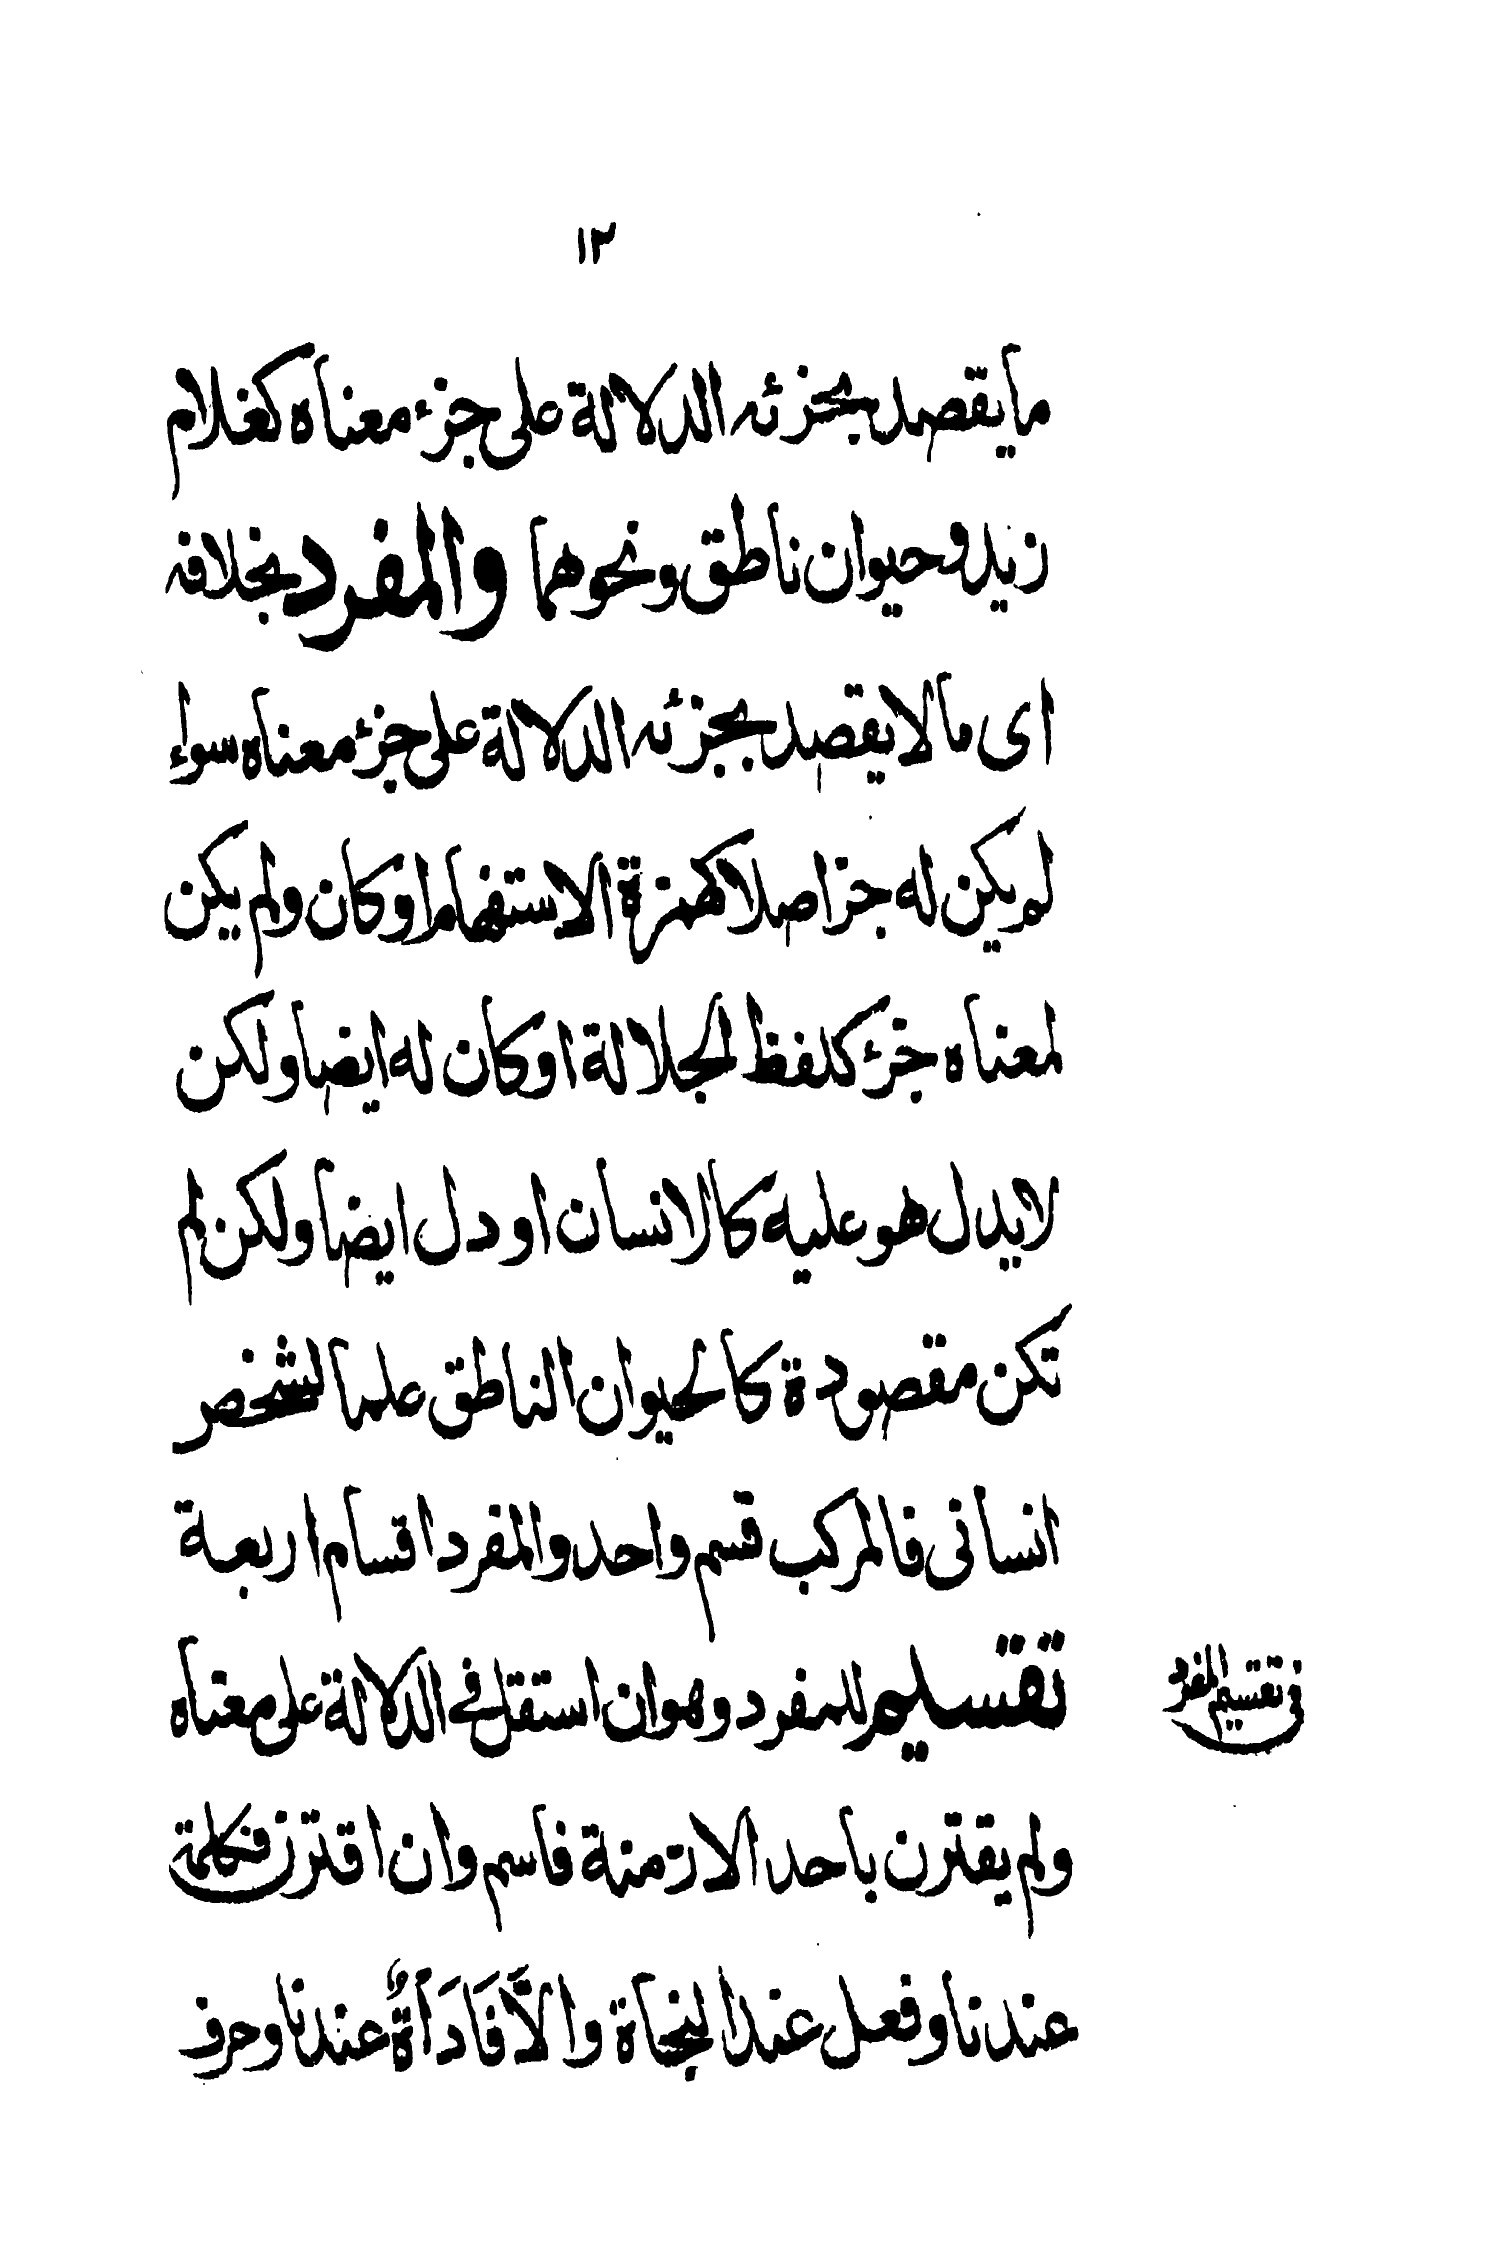 ١٣
ما يقصد بجزئه الدلالة على جزء معناه كغلام
زيد وحيوان ناطق ونحوهما والمفرد بخلافه
اى ما لا يقصد بجزئه الدلالة على جزء معناه سواء
لم يكن له جزا صلا كهمزة الاستفهام او كان ولم يكن
لمعناه جزء كلفظ الجلالة او كان له ايضا ولكن
لا يدل هو عليه كالانسان او دل ايضا ولكن لم
تكن مقصودة كالحيوان الناطق علما لشخص
انسانى فالمركب قسم واحد والمفرد اقسام اربعة
تقسيم للمفرد وهو ان استقل فى الدلالة على معناه
فى تقسيم المفرد
ولم يقترن باحد الازمنة فاسم وان اقترن فكلمة
عندنا وفعل عند النجاة والَّا فَاَدَاةٌ عندنا وحرف